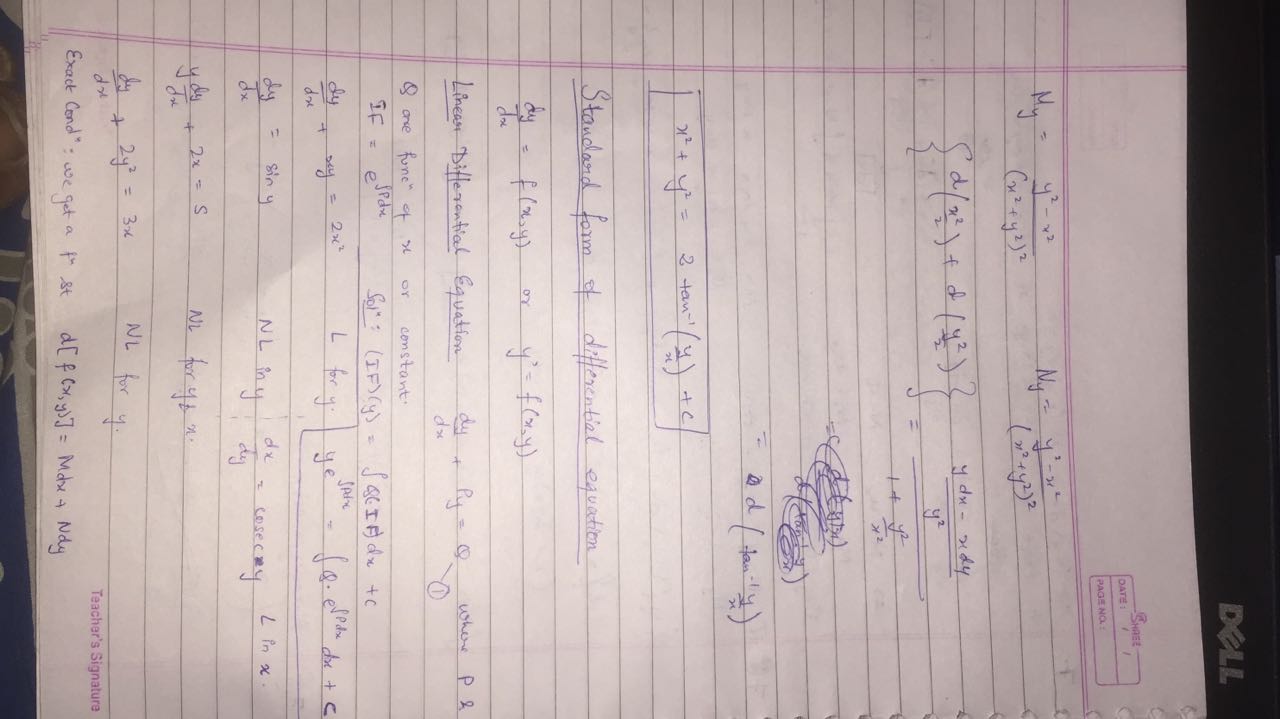 DELL
SHREE
DATE: / /
PAGE NO.:
My = y² - x² / (x² + y²)²    Ny = y² - x² / (x² + y²)²
{ d(x²/2) + d(y²/2) } = y dx - x dy / y² / 1 + y²/x²
= d(tan⁻¹ y/x)
x² + y² = 2 tan⁻¹(y/x) + c
Standard form of differential equation
dy/dx = f(x,y) or y' = f(x,y)
Linear Differential Equation dy/dx + Py = Q ① where P &
Q are funcⁿ of x or constant.
IF = e^∫Pdx    Solⁿ: (IF)(y) = ∫Q(IF)dx + c
dy/dx + xy = 2x²    L for y.    ye^∫Pdx = ∫Q.e^∫Pdx dx + c
dy/dx = sin y    NL in y    dx/dy = cosec y    L in x.
y dy/dx + 2x = 5    NL for y & x.
dy/dx + 2y² = 3x    NL for y.
Exact Condⁿ: we get a fⁿ st d[f(x,y)] = Mdx + Ndy
Teacher's Signature